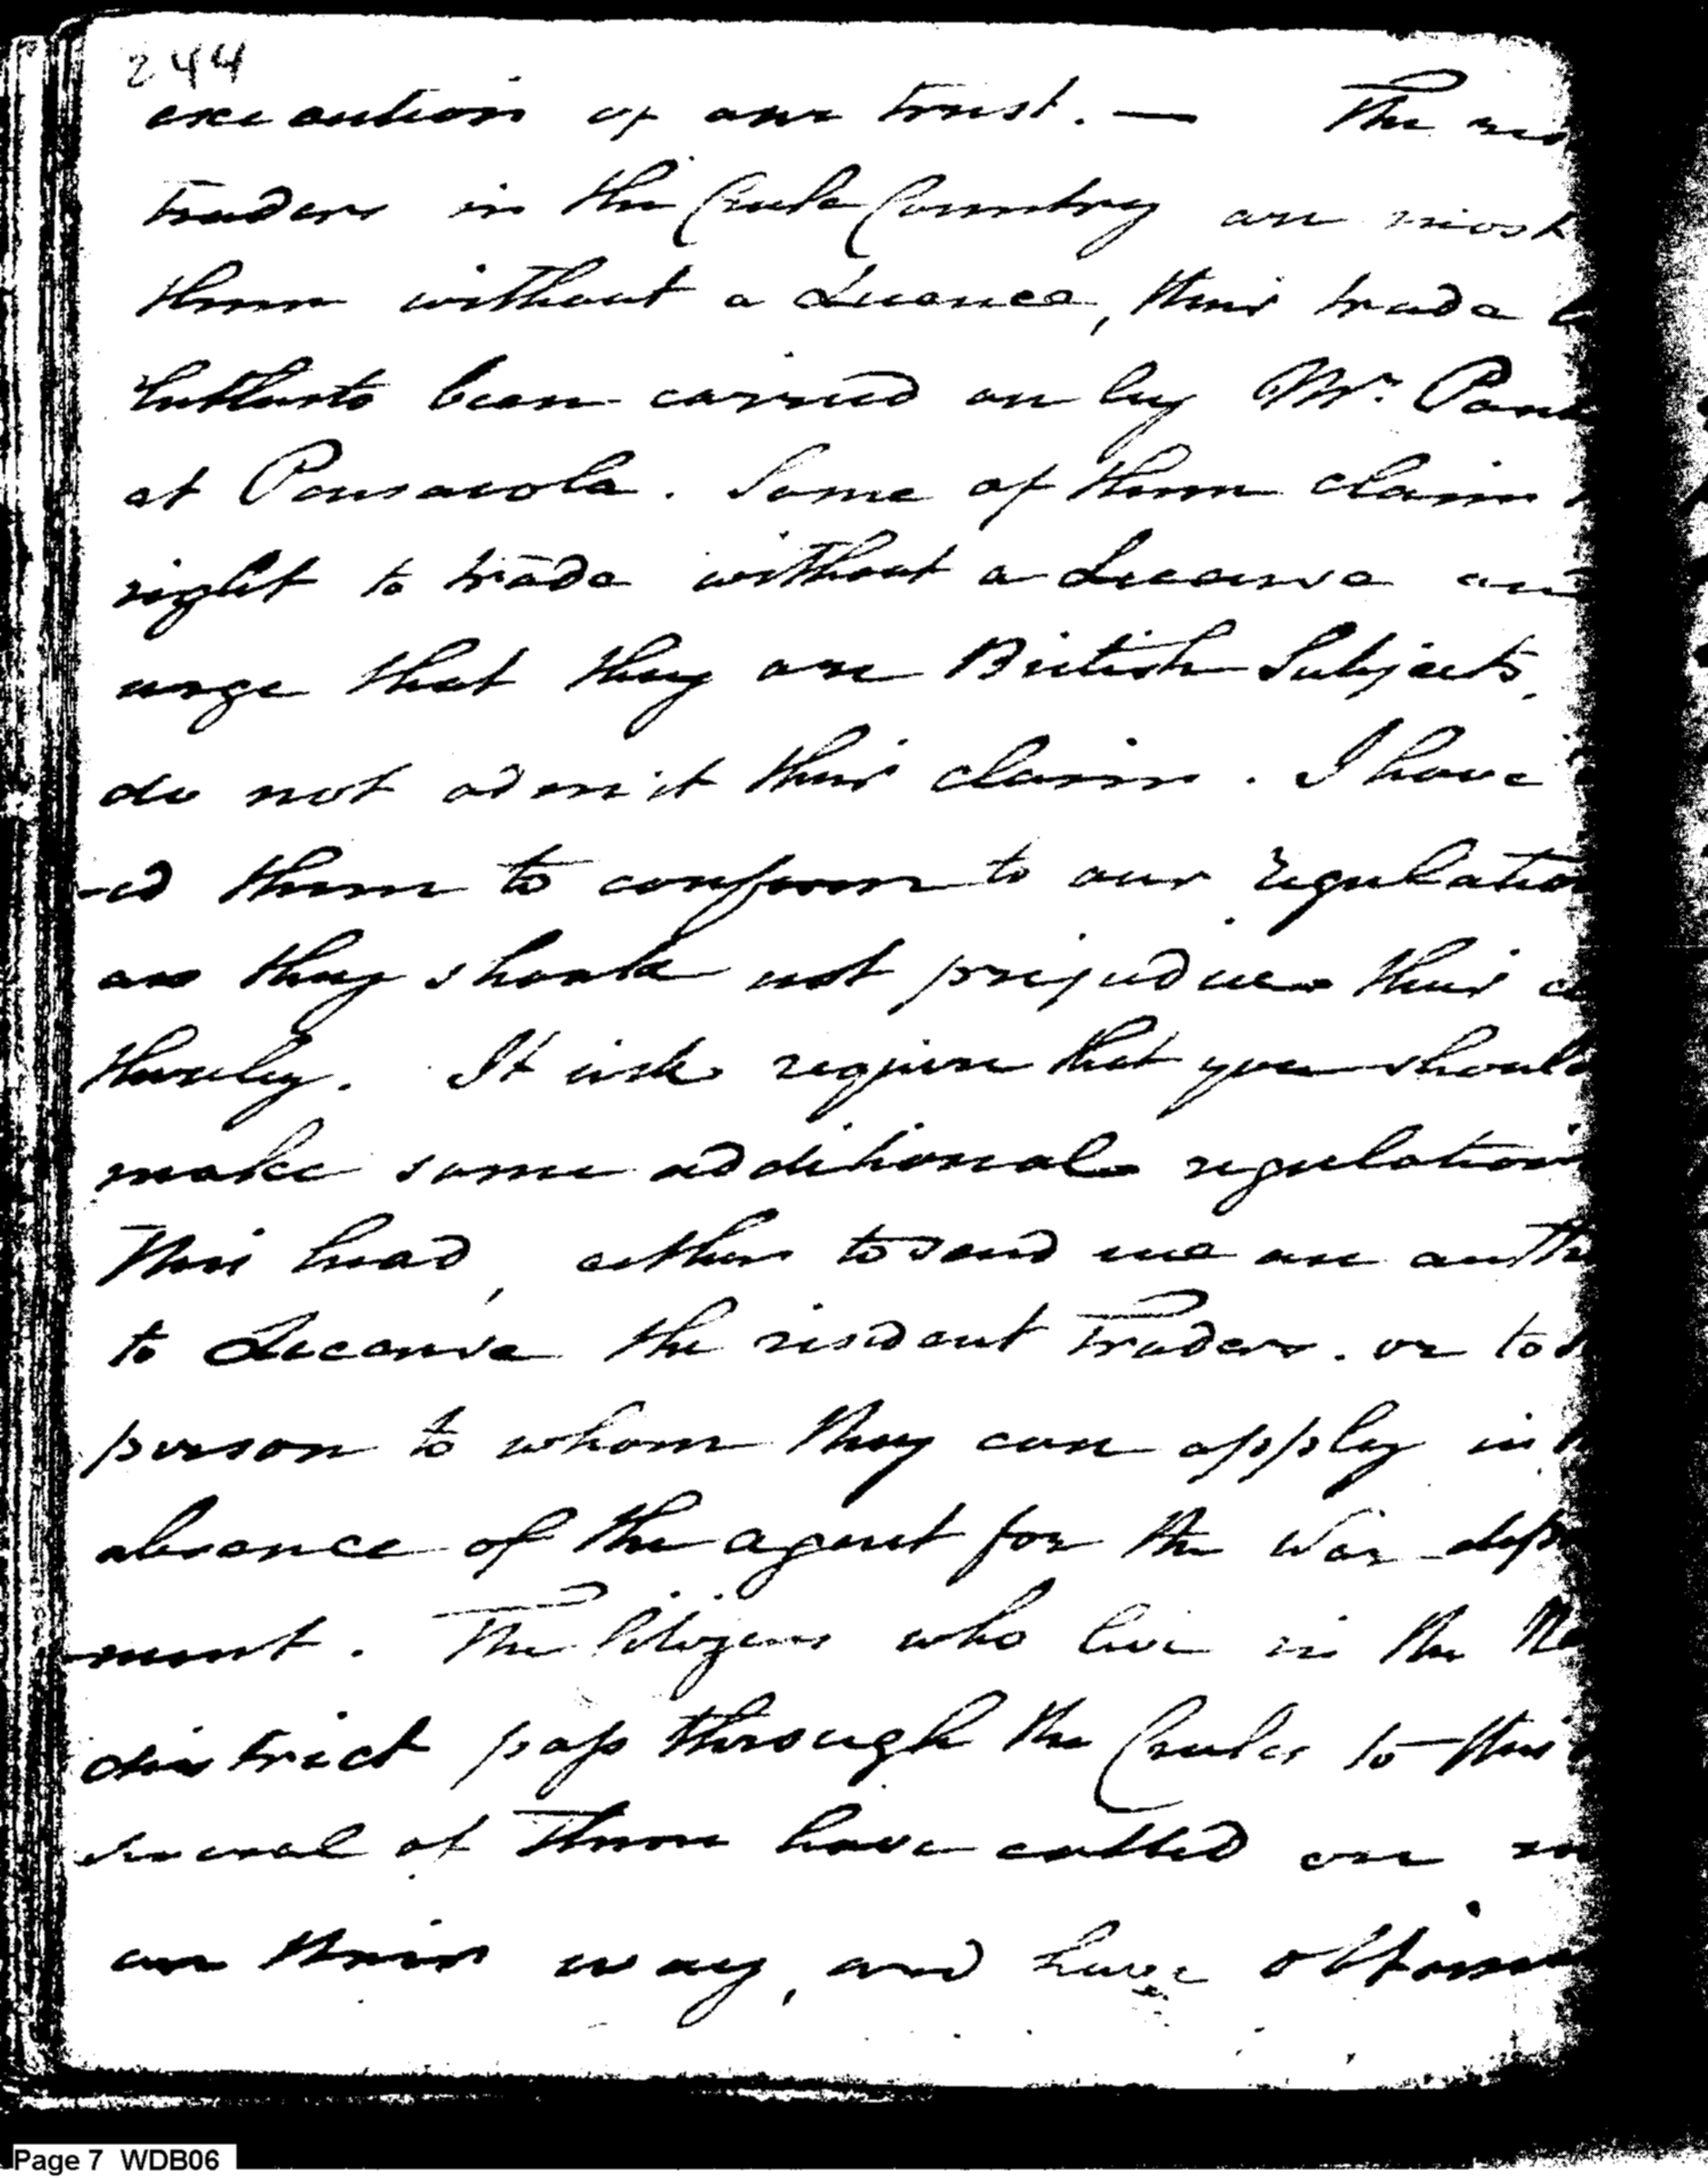 244
execution of our trust. — The
traders in the Creek Country are most
them without a Licence, their trade
hitherto been carried on by Mr. Pan
at Pensacola. Some of them claim
right to trade without a License and
urge that they are British Subjects,
do not admit their claim. I have
-ed them to conform to our regulation
as they should not prejudice their
thereby. It will require that you should
make some additional regulation
this head, either to send me an auth
to License the resident Traders. or to
person to whom they can apply in
absence of the agent for the War dep
ment. The Citizens who live in the
district pass through the Creeks to this
several of them have called on
on their way, and have obtain
Page 7 WDB06